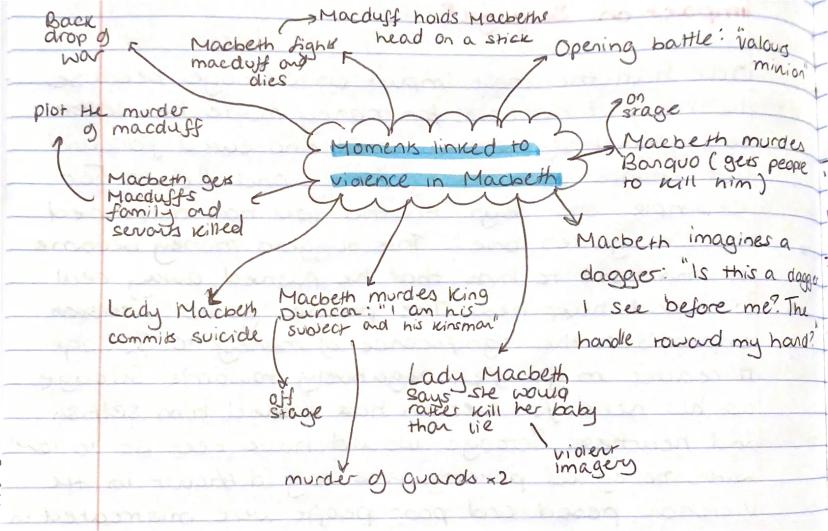 Back
drop of
war
Macbeth fights
macduff and
dies
Macduff holds Macbeths
head on a stick
Opening battle: "valous
minion"
plot the murder
of macduff
Macbeth gets
Macduffs
family and
servants killed
Moments linked to
violence in Macbeth
on
stage
Macbeth murdes
Banquo (gets people
to kill him)
Macbeth imagines a
dagger: "Is this a dagge
I see before me? The
handle toward my hand?"
Lady Macbeth
commits suicide
Macbeth murdes King
Duncan: "I am his
subject and his kinsman"
off
stage
murder of guards x2
Lady Macbeth
says she would
rather kill her baby
than lie
violent
imagery